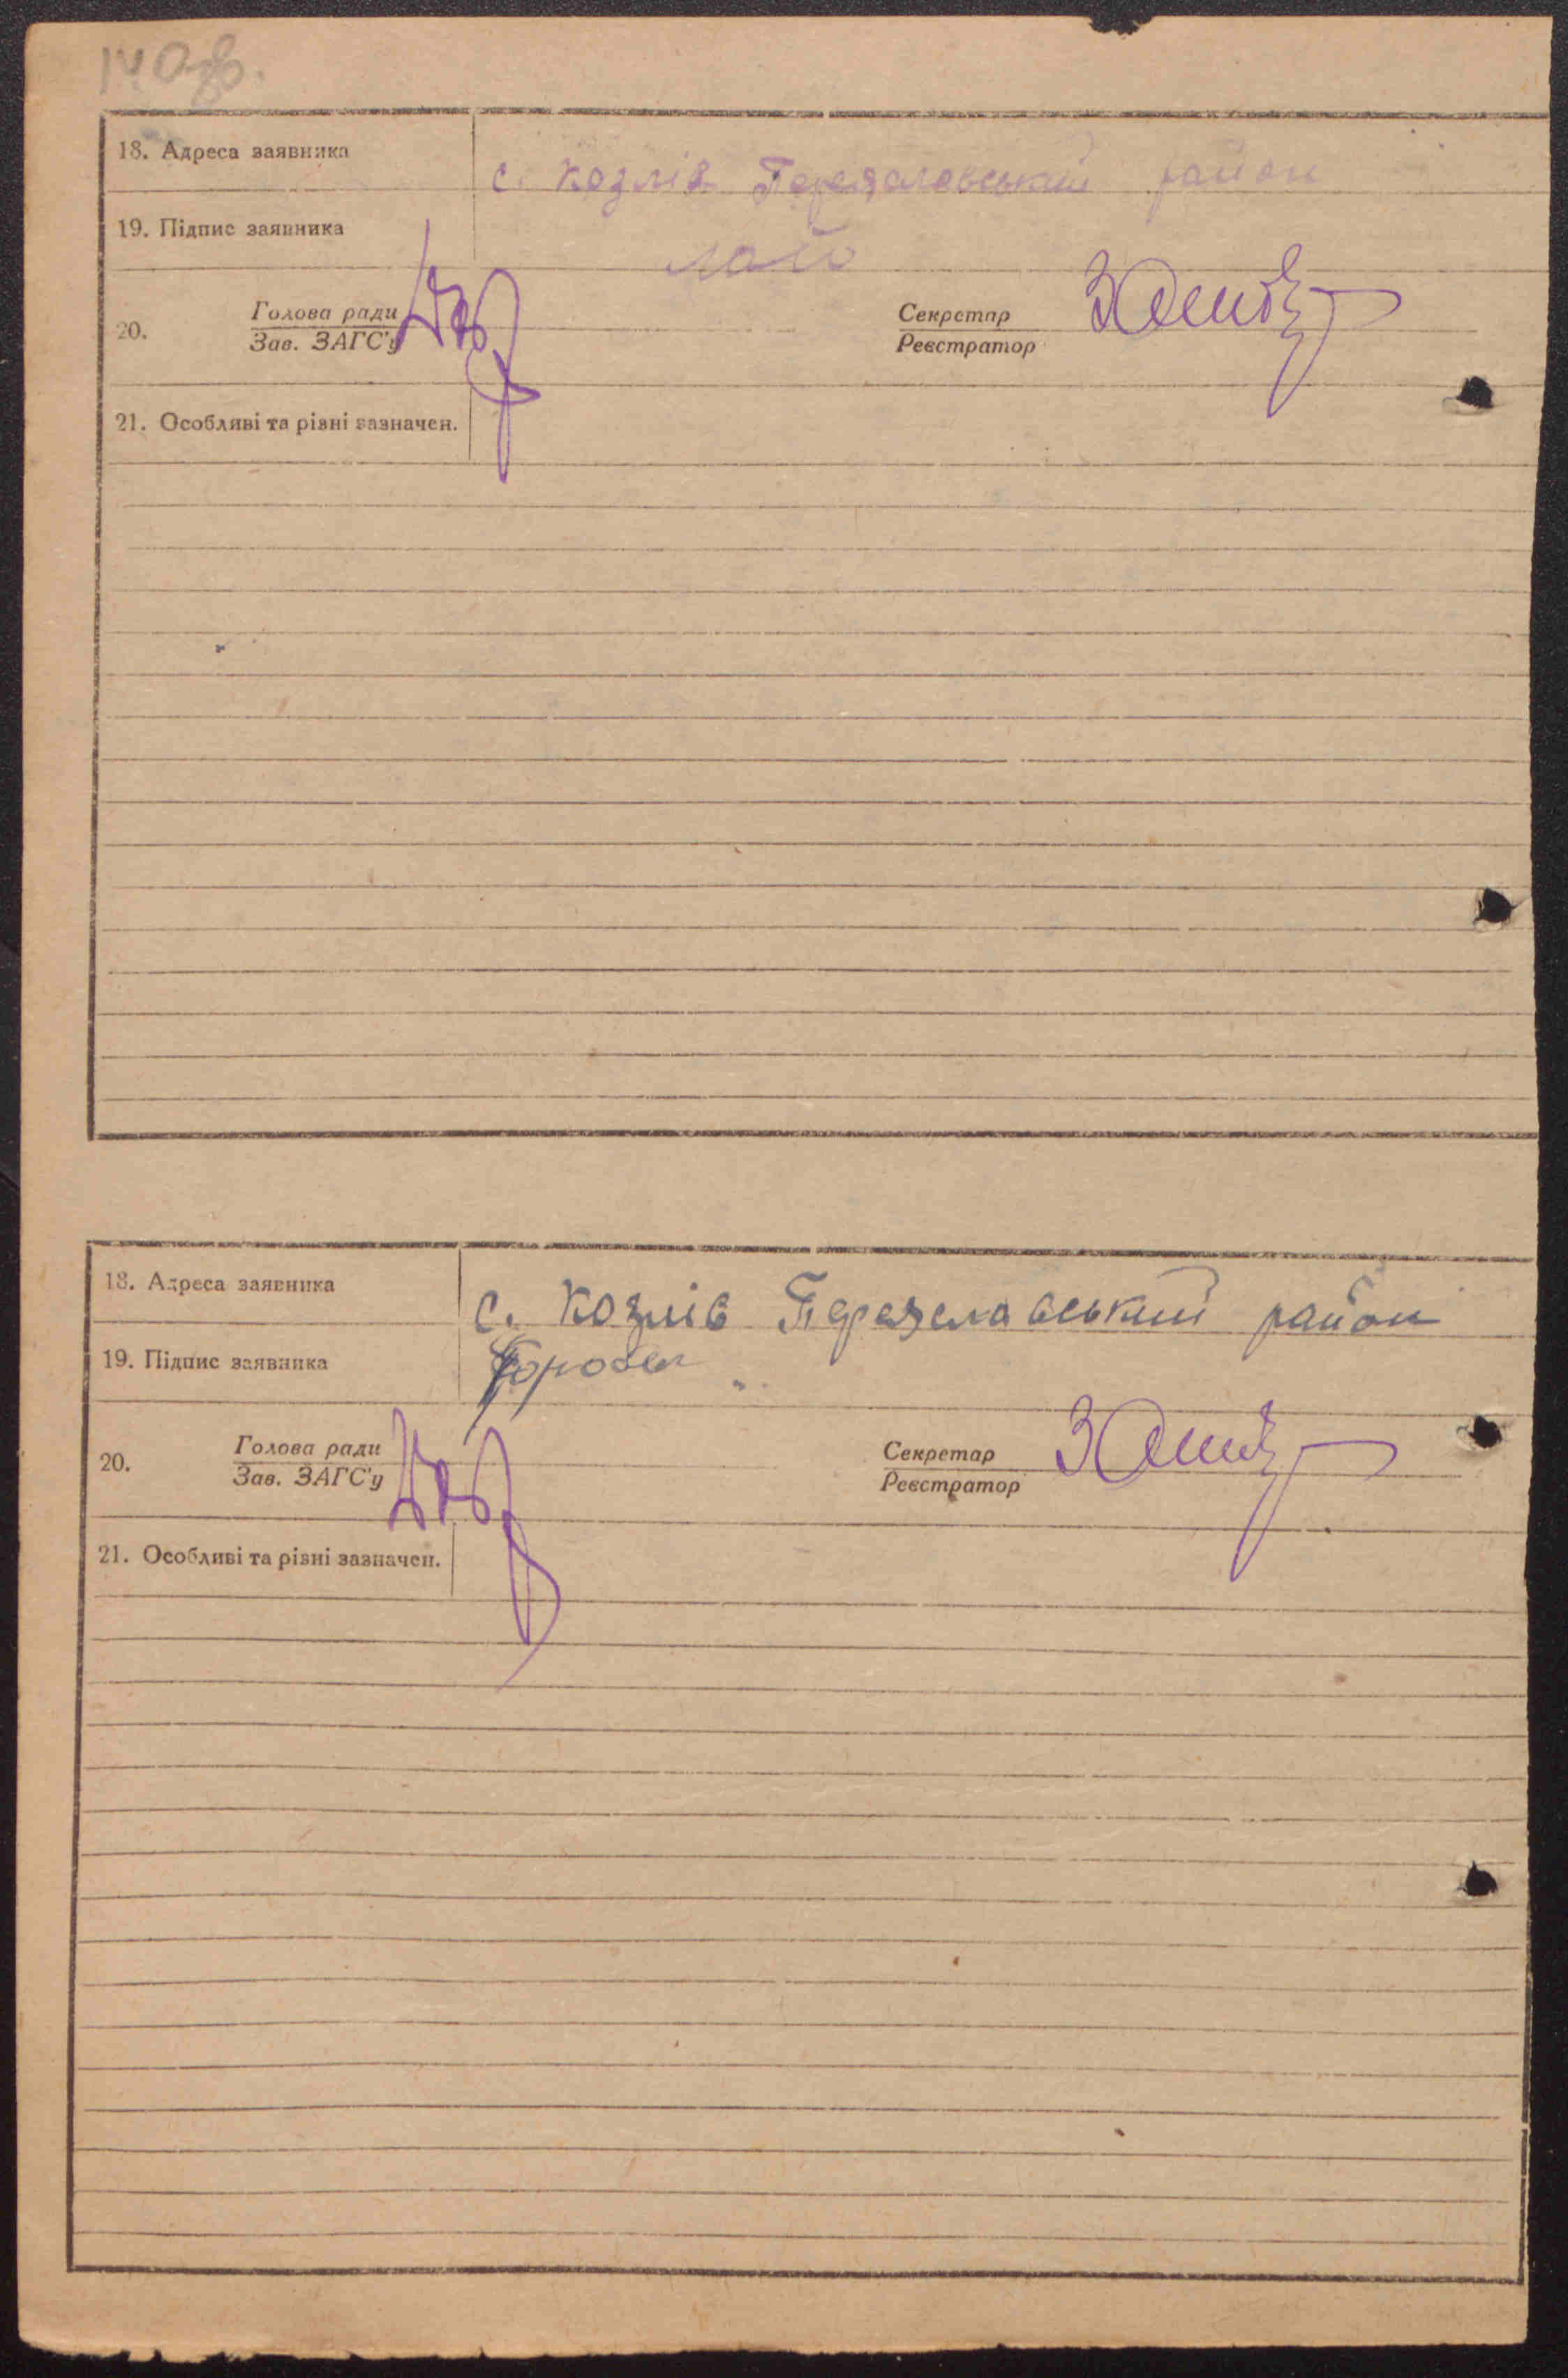 14 об.
18. Адреса заявника с. Козлів Переяславський район
19. Підпис заявника
20. Голова ради Секретар
Зав. ЗАГС'у Реєстратор
21. Особливі та різні зазначен.
18. Адреса заявника с. Козлів Переяславський район
19. Підпис заявника
20. Голова ради Секретар
Зав. ЗАГС'у Реєстратор
21. Особливі та різні зазначен.